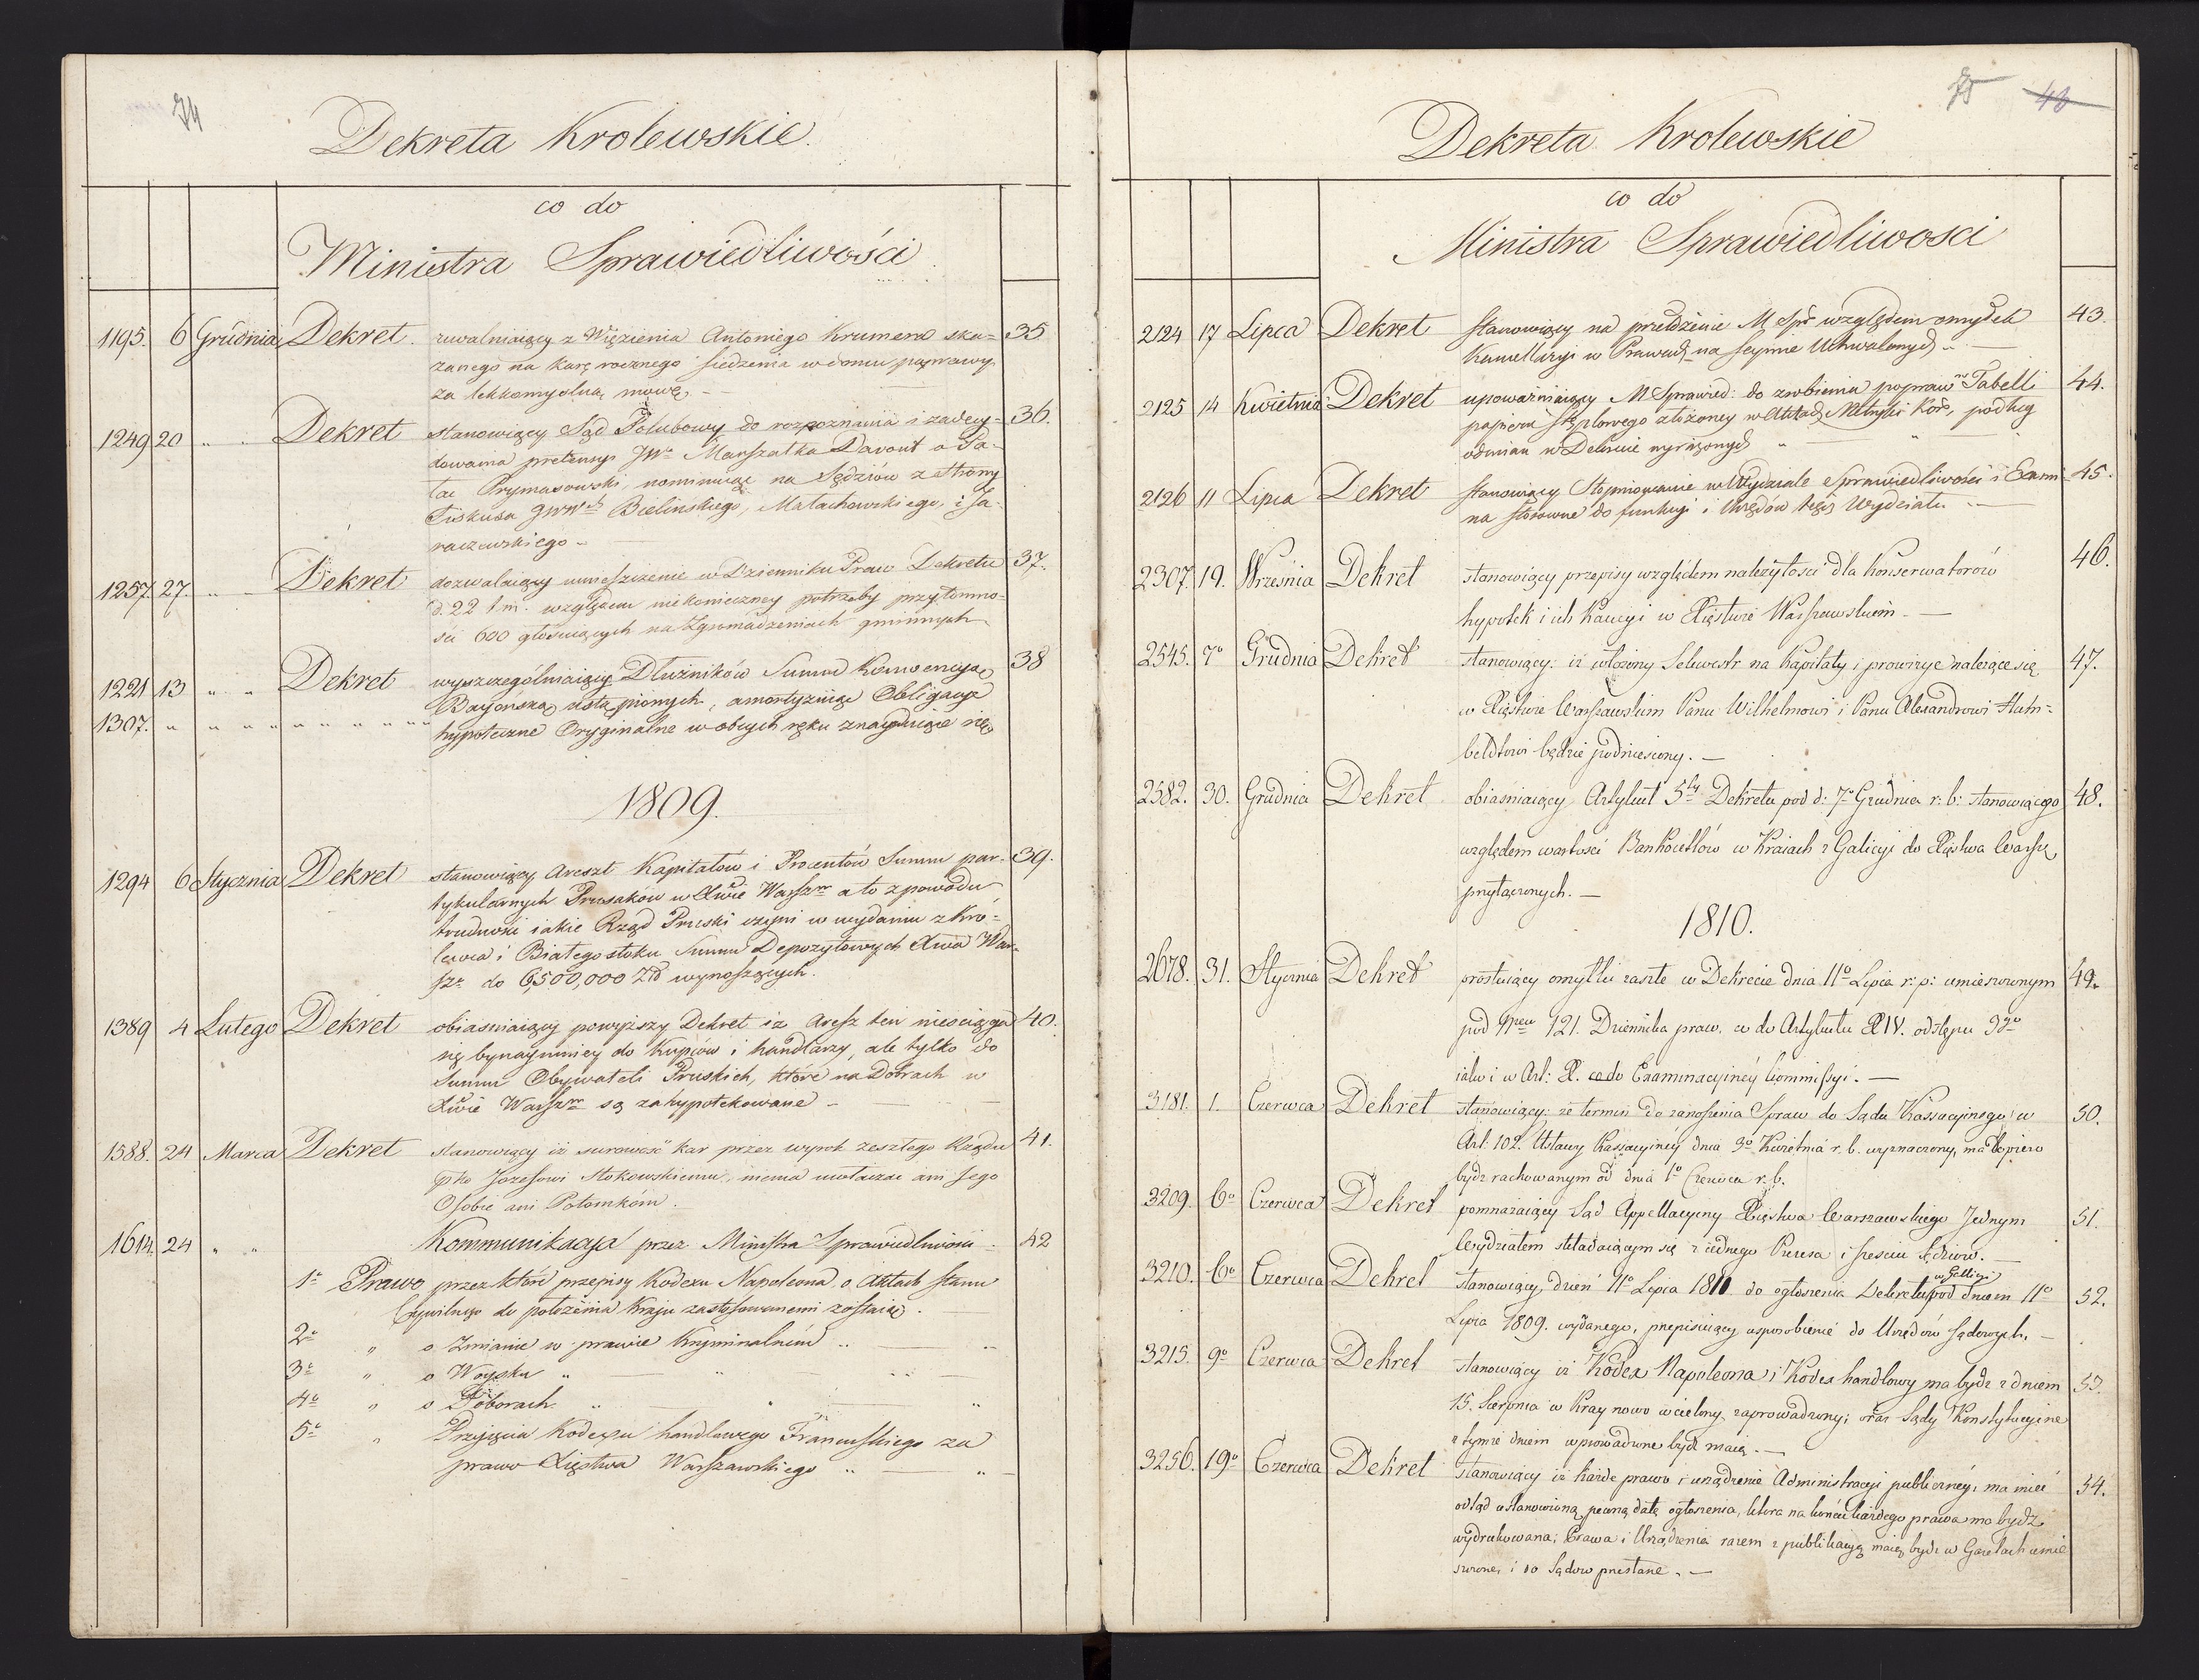 74
Dekreta Krolewskie.
co do
Ministra Sprawiedliwości
1195. 6 Grudnia Dekret. uwalniaiący z Więzienia Antoniego Krumera ska= 35
zanego na karę rocznego siedzenia w domu poprawy
za lekkomyślną mowę, -
1249 20 " " Dekret stanowiący Sąd Polubowy do rozpoznania i zadecy= 36.
dowania pretensyi JWo Marszałka Davout o Pa-
łac Prymasowski, nominuiąc na Sędziów z strony
Fiskusa JWWch Bielinskiego, Małachowskiego, i Ja-
raczewskiego -
1257. 27. " - Dekret dozwalaiący umieszczenie w Dzienniku Praw Dekretu 37.
d. 22 t. m. względem niekonieczney potrzeby przytomno=
ści 600 głosuiących na Zgromadzeniach gminnych
1221 13 " " Dekret wyszczególniaiący Dłużników Summ Konwencyą 38
Bayońską ustąpionych, amortyzuiąc Obligacye
1307. " " " " " " " " " hypoteczne Oryginalne w obcych ręku znayduiące się,
1809.
1294 6 Stycznia Dekret stanowiący Areszt Kapitałów i Procentów Summ par- 39.
tykularnych Prusaków w Xwie Warszm a to z powodu
trudności iakie Rząd Pruski czyni w wydaniu z Kró=
lewca i Białegostoku Summ Depozytowych Xwa War-
szo do 6,500,000 Zł wynoszących.
1389 4 Lutego Dekret obiasniaiący powyższy Dekret iż Areszt ten nieściąga 40.
się bynaymniey do Kupców i handlarzy, ale tylko do
Summ Obywateli Pruskich, które na Dobrach w
Xwie Warszm są zahypotekowane -
1588. 24 Marca Dekret stanowiący iż surowość kar przez wyrok zeszłego Rządu 41.
pko Jozefowi Mokowskiemu, niema uwłaczać ani Jego
Osobie ani Potomkóm.
1614. 24 " " Kommunikacya przez Ministra Sprawiedliwości - 42
1o Prawo przez które przepisy Kodexu Napoleona o Aktach Stanu
Cywilnego do położenia Kraju zastosowanemi zostaią .
2o " o Zmianie w prawie Kryminalném " "
3o " o Woysku " "
4o " o Poborach " " "
5o " Przyjęcia Kodexu handlowego Francuskiego za
prawo Xięstwa Warszawskiego " "
75 48
Dekreta Krolewskie
co do
Ministra Sprawiedliwosci
2124 17 Lipca Dekret stanowiący na przełożenie M Spr względem omyłek 43.
Kancellaryi w Prawach na Seymie Uchwalonych -
2125 14 Kwietnia Dekret upoważniaiący M Sprawied: do zrobienia popraw w Tabelli 44.
papieru Stęplowego złożoney w Aktach Metryki Kor., podług
odmian w Dekrecie wyrażonych "
2126 11 Lipca Dekret stanowiący Stopniowanie w Wydziale Sprawiedliwości i Exami- 45.
na stosowne do funkcyi i Urzędów tegoż Wydziału -
2307. 19. Września Dekret stanowiący przepisy względem należytości dla Konserwatorów 46.
hypotek i ich Kaucyi w Xięstwie Warszawskiém -
2545. 7o Grudnia Dekret stanowiący: iż włożony Sekwestr na Kapitały i prowizye należące się 47.
w Xięstwie Warszawskim Panu Wilhelmowi i Panu Alexandrowi Hum=
boldtowi będzie podniesiony. -
2582. 30. Grudnia Dekret obiasniaiący Artykuł 5ty Dekretu pod d: 7o Grudnia r: b: stanowiącego 48.
względem wartości Bankocetlów w Kraiach z Galicyi do Xięstwa Warsz.
przyłączonych. -
1810.
2678. 31. Stycznia Dekret prostuiący omyłki zaszłe w Dekrecie dnia 11o Lipca r: p: umieszczonym 49.
pod Nrem 121. Dziennika praw. co do Artykułu XIV. odstępu 3go
iako i w Art: X. co do Examinacyinéy Kommissyi. -
3181. 1. Czerwca Dekret stanowiący: że termin do zanoszenia Spraw do Sądu Kassacyinego w 50.
Art: 102. Ustawy Kassacyinéy dnia 3o Kwietnia r. b. wyznaczony, ma dopiero
bydz rachowanym od dnia 1o Czerwca r. b.
3209. 6o Czerwca Dekret pomnażaiący Sąd Appellacyiny Xięstwa Warszawskiego Jednym 51.
Wydziałem składaiącym się z iednego Prezesa i sześciu Sędziow. -
3210. 6o Czerwca Dekret stanowiący, dzień 11o Lipca 1810 do ogłoszenia Dekretu w Gallicyi pod dniem 11o 52.
Lipca 1809. wydanego, przepisuiący usposobienie do Urzędów sądowych. -
3215. 9o Czerwca Dekret stanowiący iż Kodex Napoleona i Kodex handlowy ma bydz z dniem 53.
15. Sierpnia w Kray nowo wcielony zaprowadzony; oraz Sądy Konstytucyine
z tymże dniem wprowadzone bydź maią. -
3256. 19o Czerwca Dekret stanowiący iż każde prawo i urządzenie Administracyi publicznéy, ma mieć 54.
odtąd ustanowioną pewną datę ogłoszenia, która na końcu każdego prawa ma bydz
wydrukowana; Prawa i Urządzenia razem z publikacyą maią bydz w Gazetach umie
szczone, i do Sądow przesłane. -